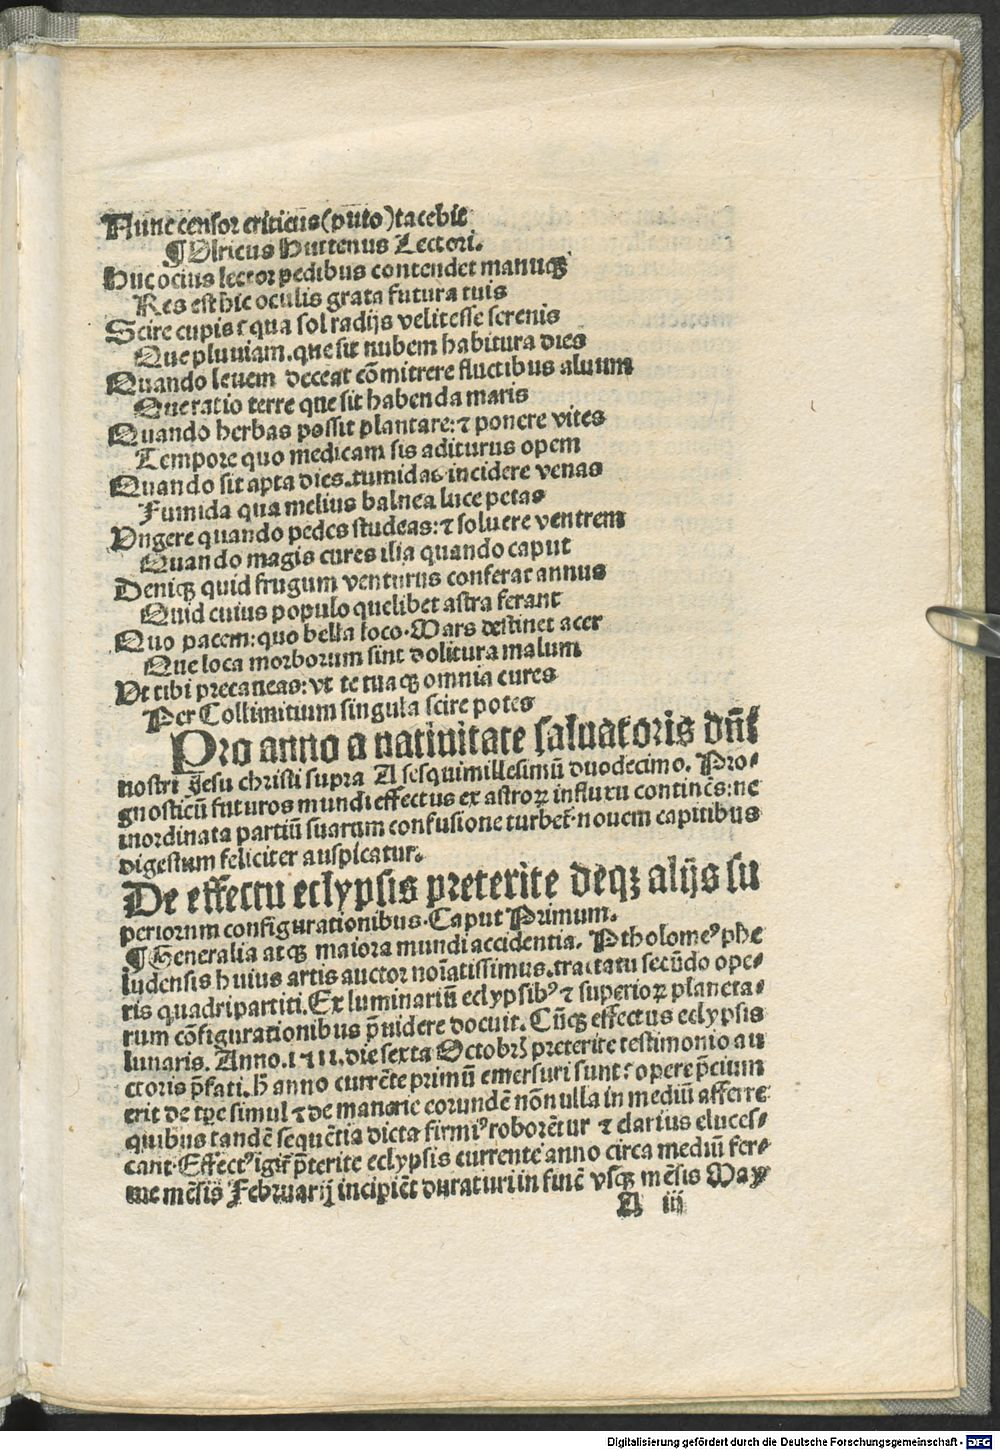 Nunc censor criticus (puto) tacebit
¶ Ulricus Huttenus Lectori.
Huc ocius lector pedibus contendet manuqꝫ
Res est hic oculis grata futura tuis
Scire cupis ⁊ qua sol radijs velit esse serenis
Que pluuiam. que sit nubem habitura dies
Quando leuem deceat cōmittere fluctibus aluum
Que ratio terre que sit habenda maris
Quando herbas possit plantare: ⁊ ponere vites
Tempore quo medicam sis aditurus opem
Quando sit apta dies. tumidas incidere venas
Fumida qua melius balnea luce petas
Vngere quando pedes studeas: ⁊ soluere ventrem
Quando magis cures ilia quando caput
Deniqꝫ quid frugum venturus conferat annus
Quid cuius populo quelibet astra ferant
Quo pacem: quo bella loco. Mars destinet acer
Que loca morborum sint dolitura malum
Vt tibi precaueas: vt te tuaqꝫ omnia cures
Per Collimitium singula scire potes
Pro anno a natiuitate saluatoris dn̄i
nostri Jesu christi supra A sesquimillesimū duodecimo. Pro⸗
gnosticū futuros mundi effectus ex astroꝝ influxu continēs: ne
inordinata partiū suarum confusione turbet. nouem capitibus
digestum feliciter auspicatur.
De effectu eclypsis preterite deqꝫ alijs su
periorum configurationibus. Caput Primum.
¶ Generalia atqꝫ maiora mundi accidentia. Ptholomeꝰ phe
ludensis huius artis auctor noīatissimus. tractatu secūdo ope⸗
ris quadripartiti. Ex luminariū eclypsibꝰ ⁊ superioꝝ planeta⸗
rum cōfigurationibus p̄uidere docuit. Cūqꝫ effectus eclypsis
lunaris. Anno. 1511. die sexta Octobris preterite testimonio au
ctoris p̄fati. h̄ anno currēte primū emersuri sunt: opere p̄cium
erit de tpe simul ⁊ de manerie eorundē nōn ulla in mediū afferre
quibus tandē sequētia dicta firmiꝰ roborētur ⁊ clarius eluces⸗
cant. Effectꝰ igit̄ p̄terite eclypsis currente anno circa mediū fer⸗
me mēsis Februarij incipiēt duraturi in finē vsqꝫ mēsis May
A iij
Digitalisierung gefördert durch die Deutsche Forschungsgemeinschaft - DFG